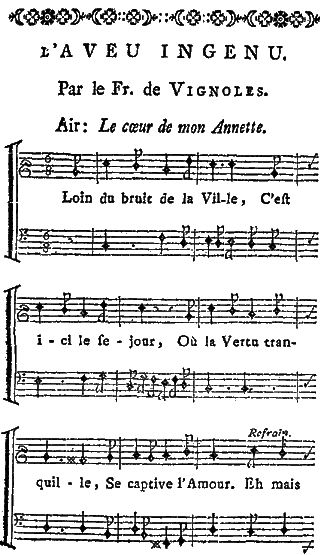 L'AVEU INGENU.
Par le Fr. de VIGNOLES.
Air: Le cœur de mon Annette.
Loin du bruit de la Vil-le, C'eſt
i - ci le ſe - jour, Où la Vertu tran-
Refrain.
quil - le, Se captive l'Amour. Eh mais